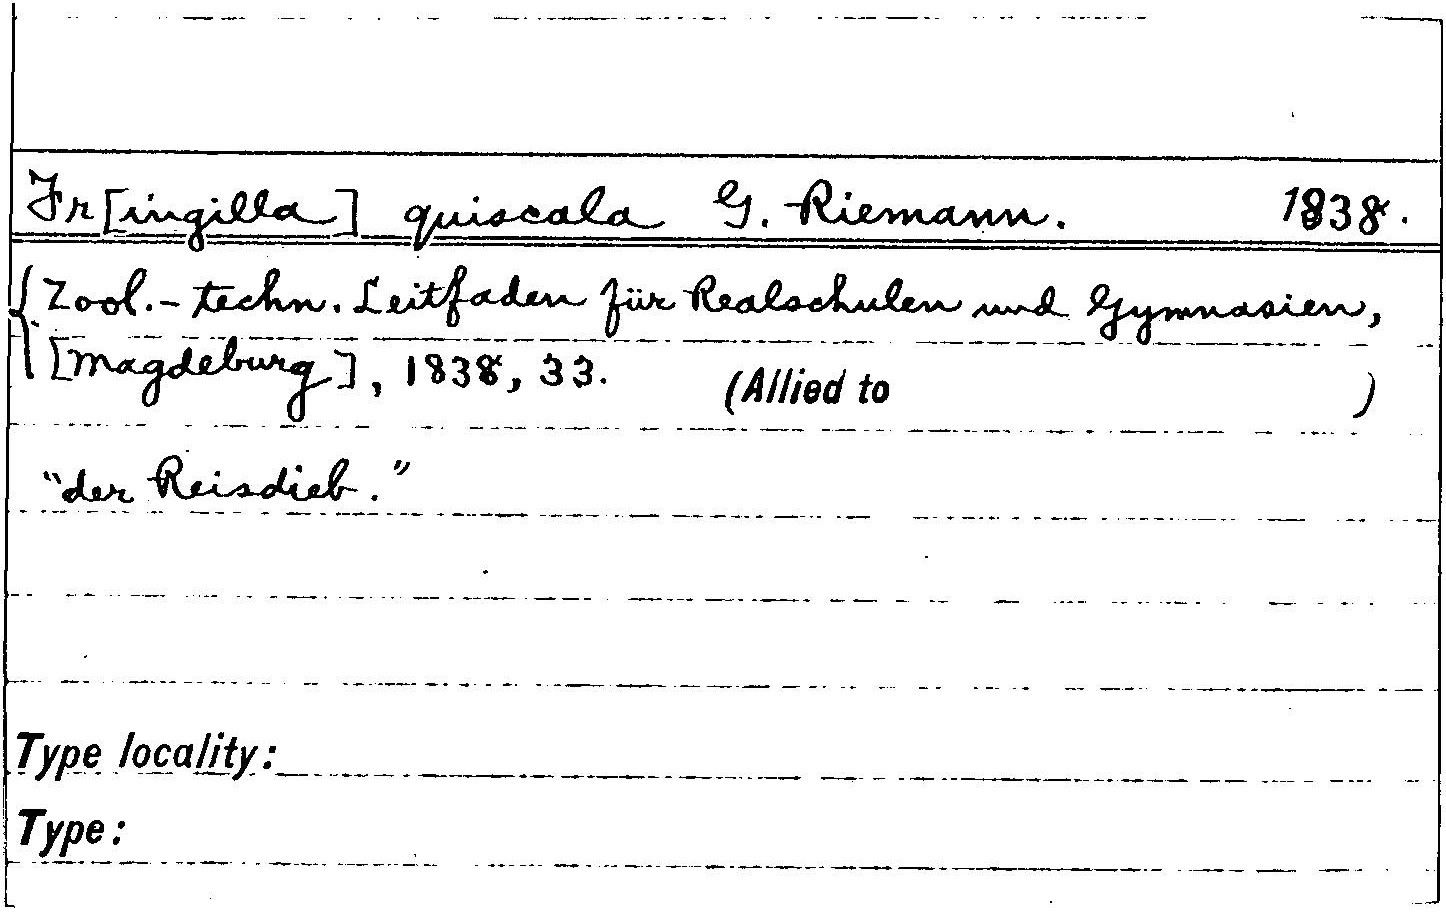 Fr[ingilla] quiscala G. Riemann. 1838.
Zool.-techn. Leitfaden für Realschulen und Gymnasien,
[Magdeburg], 1838, 33. (Allied to )
"der Reisdieb."
Type locality:
Type: